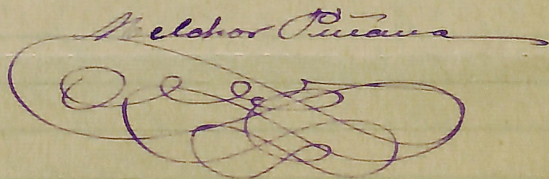 Melchor Piñana